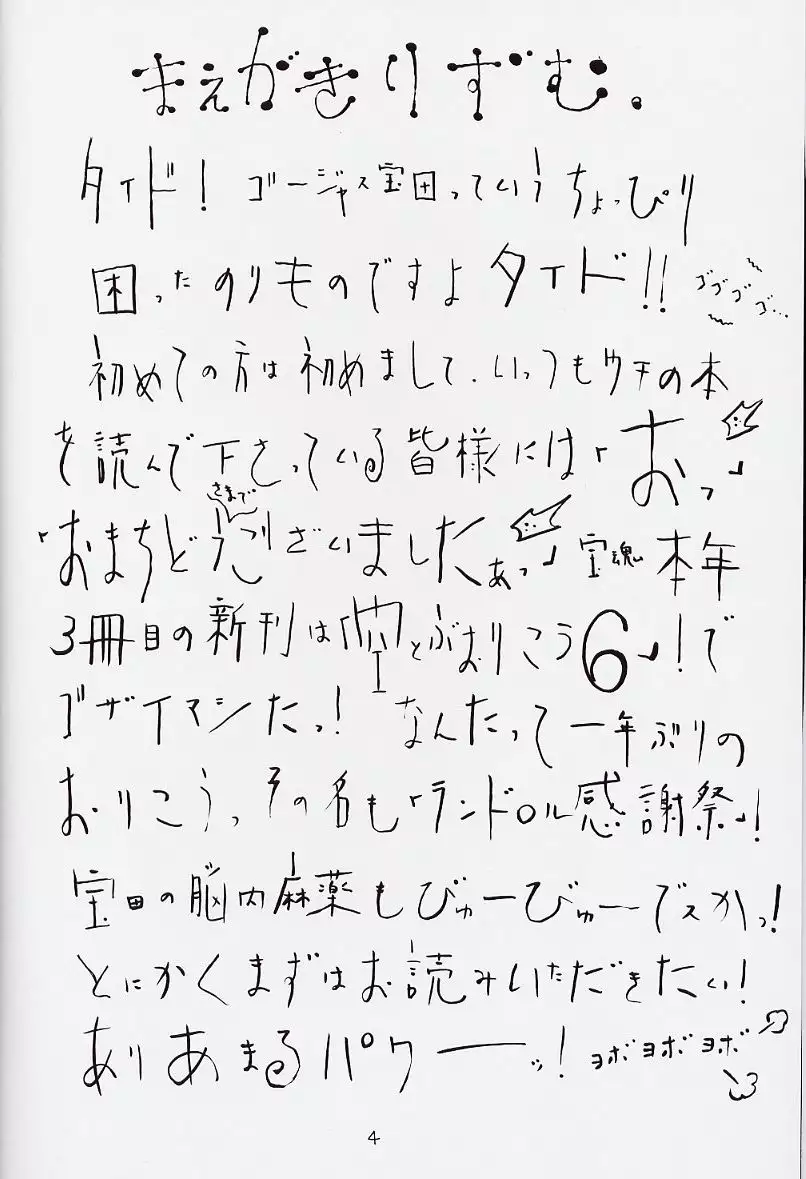 まえがきりずむ。
タイド！ゴージャス宝田っていうちょっぴり
困ったのりものですよタイド!! ゴゴゴゴ…
初めての方は初めまして、いっつもウチの本
を読んで下さっている皆様には「おっ」
さまで
「おまちどうございましたあっ」宝魂本年
3冊目の新刊は「空とぶおりこう6」！で
ゴザイマシたっ！なんたって一年ぶりの
おりこうっ、その名も「ランドロル感謝祭」！
宝田の脳内麻薬もびゅーびゅーでスかっ！
とにかくまずはお読みいただきたい！
ありあまるパワーーッ！ヨボヨボヨボ
4